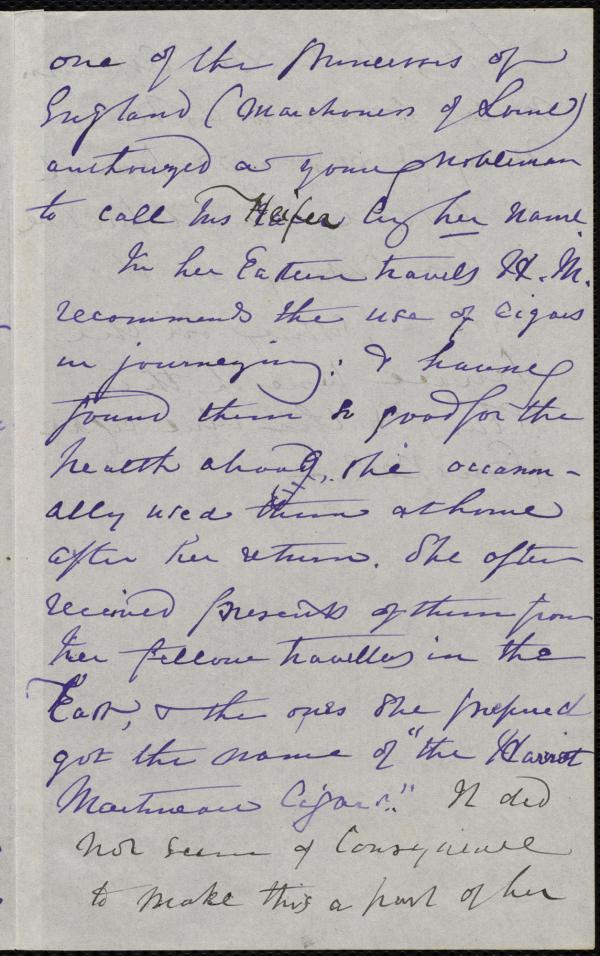 one of the Princesses of
England (Marchioness of Lorne)
authorized a young nobleman
to call his Heifer by her name.
In her Eastern travels H. M.
recommends the use of cigars
in journeying: & having
found them so good for the
health abroad, she occasion-
ally used them at home
after her return. She often
received presents of them from
her fellow travellers in the
East, & the ones she prefered
got the name of "the Harriet
Martineau Cigars." It did
not seem of consequence
to make this a part of her